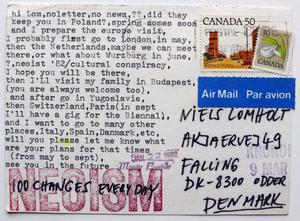 hi Lom,noletter,no news,??,did they
destroy you in Poland?,spring comes soon
and i prepare the europe visit,
I probably first go to london,in may,
then the Netherlands,maybe we can meet
there,or what about Wurzburg in june
?,neoist '82/cultural conspiracy,
I hope you will be there
then I'll visit my family in Budapest,
(you are always welcome too),
and after go in Yugoslavie,
then Switzerland,Paris(in sept
I'll have a gig for the Biennal),
and I want to go many other
places,Italy,Spain,Danmark,etc,
will you please let me know what
are your plans for that times
(from may to sept).
see you in the future
Monty Cantsin
22 1982
NEOISM
100 CHANGES EVERY DAY
CANADA 50
CANADA
Air Mail Par avion
NIELS LOMHOLT
FALLING
DK-8300 ODDER
DENMARK
9 MAR